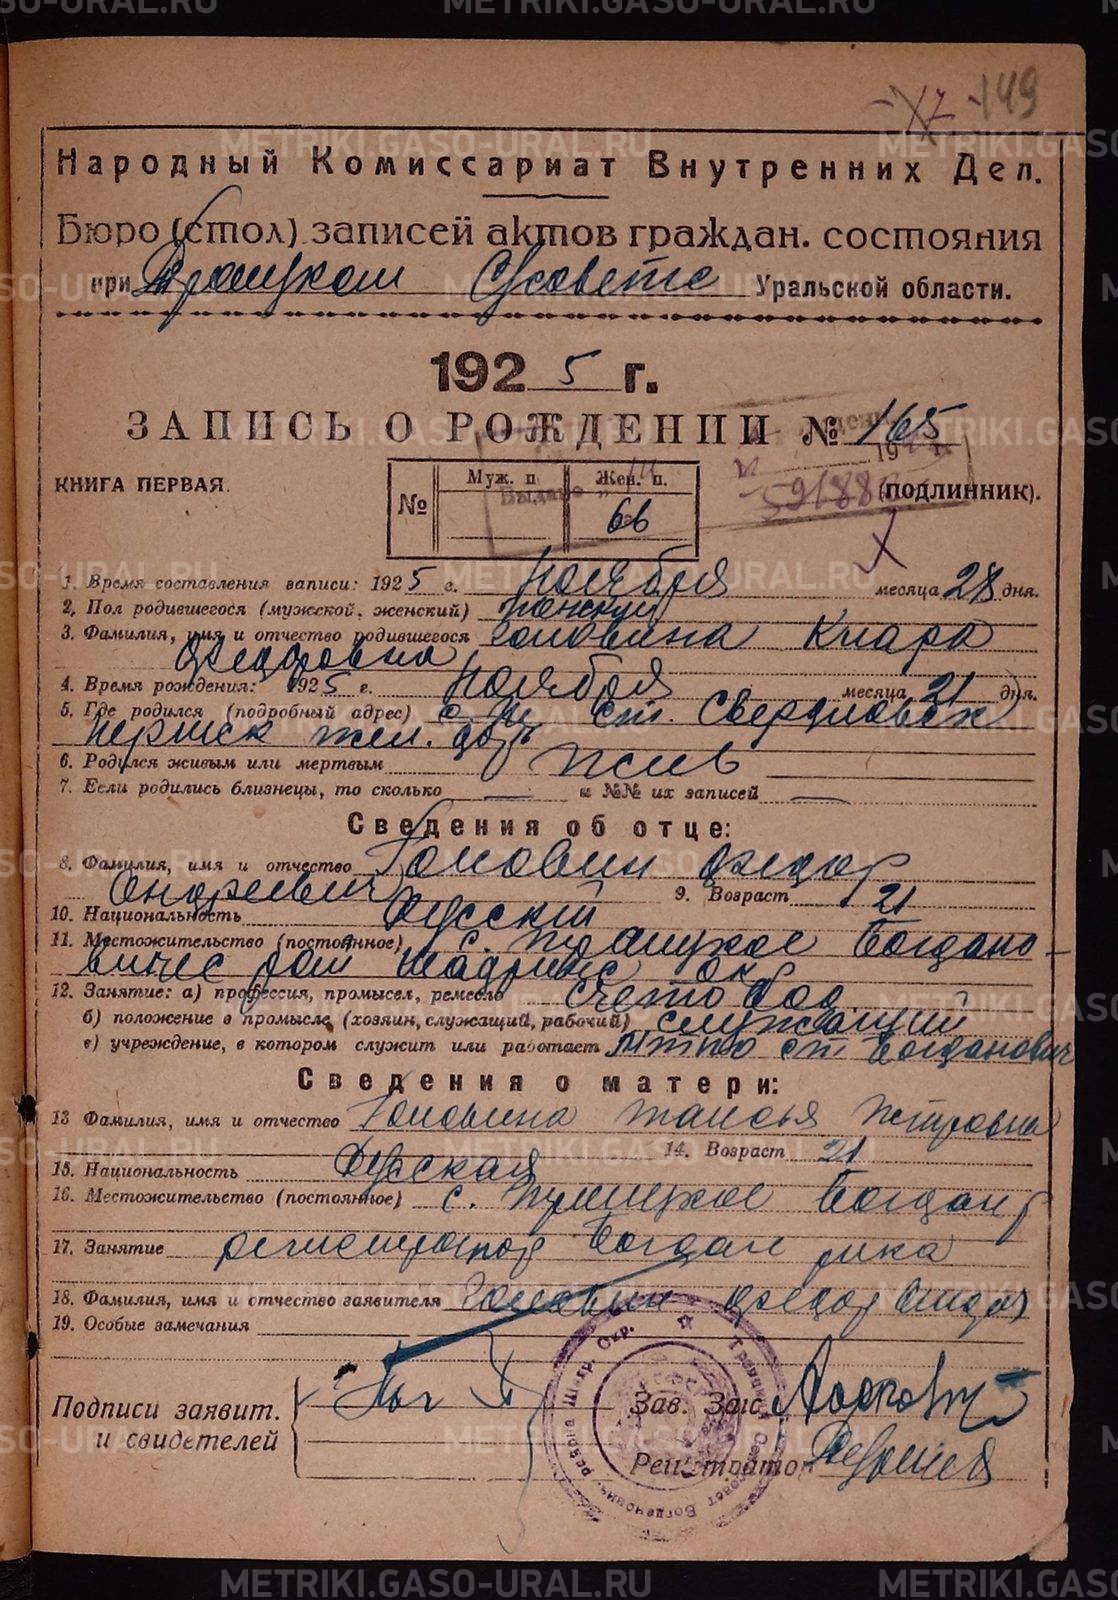 - 17 - 149
Народный Комиссариат Внутренних Дел.
Бюро (стол) записей актов граждан. состояния
при Троицком С/совете Уральской области.
1925 г.
ЗАПИСЬ О РОЖДЕНИИ № 165
КНИГА ПЕРВАЯ.
№ Муж. п. Жен. п.
66
Выдано
19
59188
(подлинник).
1. Время составления записи: 1925 г. ноября месяца 28 дня.
2. Пол родившегося (мужской, женский) женский
3. Фамилия, имя и отчество родившегося Головина Клара
Федоровна
4. Время рождения: 1925 г. ноября месяца 21 дня.
5. Где родился (подробный адрес) ст. Свердловск
Пермск жел. дор
6. Родился живым или мертвым жив
7. Если родились близнецы, то сколько — и №№ их записей —
Сведения об отце:
8. Фамилия, имя и отчество Головин Федор
Андреевич 9. Возраст 21
10. Национальность Русский
11. Местожительство (постоянное) с. Троицкое Богдано-
вичес рай Шадринс Окр
12. Занятие: а) профессия, промысел, ремесло счетовод
б) положение в промысле (хозяин, служащий, рабочий) служащий
в) учреждение, в котором служит или работает ст Богданович
Сведения о матери:
13 Фамилия, имя и отчество Головина Таисья Петровна
14. Возраст 21
15. Национальность Русская
16. Местожительство (постоянное) с. Троицкое Богдан р
17. Занятие регистратор Богдан рика
18. Фамилия, имя и отчество заявителя Головин Федор Андр
19. Особые замечания
Подписи заявит.
и свидетелей
Зав. Загс
Регистратор
Троицкий Сельсовет Богданович. района Шадр. Окр.
METRIKI.GASO-URAL.RU